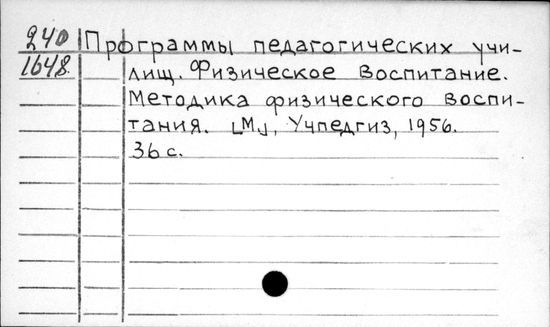 240 Программы педагогических учи-
1648. лищ. Физическое воспитание.
Методика физического воспи-
тания. [М.], Учпедгиз, 1956.
36 с.